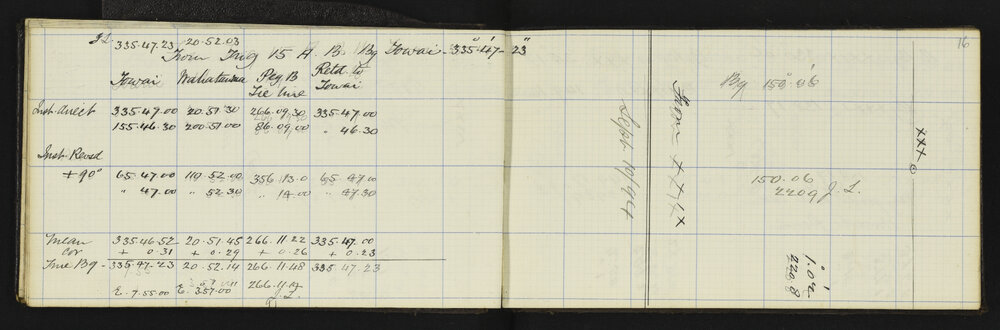 J.L. 335.47.23 20.52.03
From Trig 15 A B. Bg Towai - 335°.47'.23"
Towai Wahatuma Peg B Tie line Retd to Towai
Inst. direct 335.47.00 20.51.30 266.09.30 335.47.00
155.46.30 200.51.00 86.09.00 " 46.30
Inst. Revsd
+ 90° 65.47.00 110.52.00 356.13.0 65.47.00
" 47.00 " 52.30 " 14.00 " 47.30
Mean 335.46.52 20.51.45 266.11.22 335.47.00
Cor + 0.31 + 0.29 + 0.26 + 0.23
True Bg - 335.47.23 20.52.14 266.11.48 335.47.23
E. 7.55.00 E. 3.57.00 266.11.
J.L.
16
Sept 10/94
From
Bg 150.06
150.06
2209 J.L.
XXX
1.02
220.8